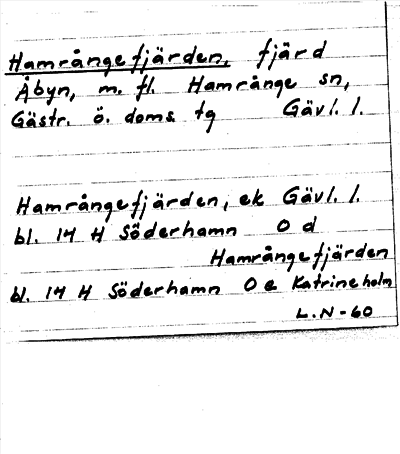 Hamrångefjärden, fjärd
Åbyn, m. fl. Hamrånge sn,
Gästr. ö. doms. tg Gävl. l.
Hamrångefjärden, ek Gävl. l.
bl. 14 H Söderhamn 0 d
Hamrångefjärden
bl. 14 H Söderhamn 0 e Katrineholm
L.N-60